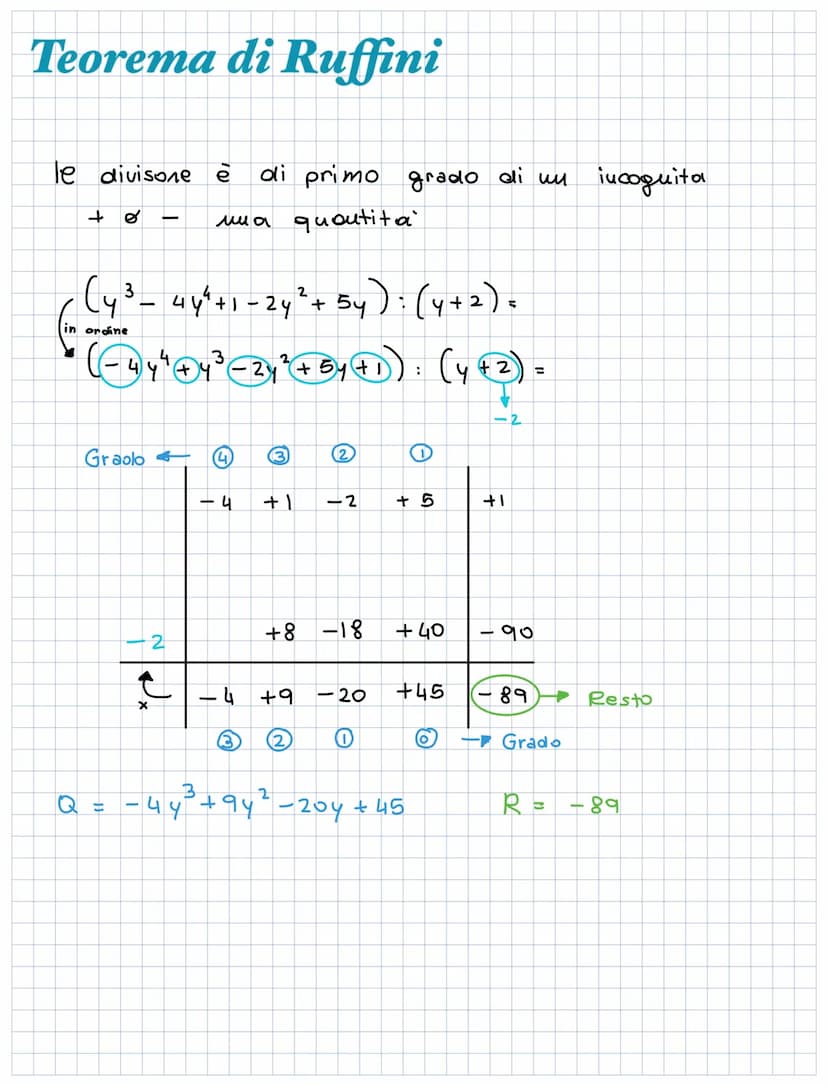 Teorema di Ruffini
le divisore è di primo grado di un incognita
+ o - una quantità
(y³ - 4y⁴ + 1 - 2y² + 5y) : (y + 2) =
in ordine
(- 4y⁴ + y³ - 2y² + 5y + 1) : (y + 2) =
- 2
Grado ← ④ ③ ② ①
- 4 + 1 - 2 + 5 + 1
- 2 + 8 - 18 + 40 - 90
x - 4 + 9 - 20 + 45 - 89 → Resto
③ ② ① ⓪ → Grado
Q = - 4y³ + 9y² - 20y + 45 R = - 89